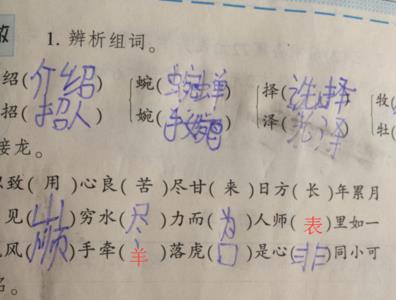 1. 辨析组词。
绍(介绍) 蜿(蜿蝉) 择(选择) 牧(
招(招人) 婉( 泽(光泽) 牡(
接龙。
以致(用)心良(苦)尽甘(来)日方(长)年累月
见( )穷水(尽)力而(为)人师(表)里如一
风( )手牵(羊)落虎(口)是心(非)同小可